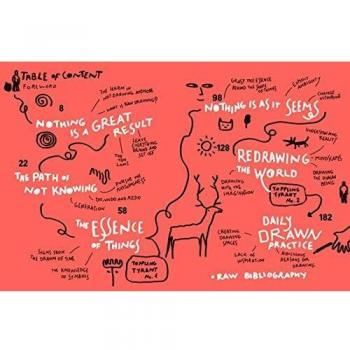 TABLE OF CONTENT
FOREWORD
8
THE CHARM OF
NOT DRAWING ANYMORE
WHAT IS RAW DRAWING?
NOTHING
IS A GREAT
RESULT
LEAVE
EVERYTHING
BEHIND AND
SET OUT
TEN
LAWS
22
THE PATH OF
NOT KNOWING
PURSUE THE
DO, UNDO AND REDO
GENERATION
58
THE ESSENCE
OF THINGS
SIGNS FROM
THE DRAWN OF TIME
THE KNOWLEDGE
OF SYMBOLS
TOPPLING
TYRANT
No. 1
98
GRASP THE ESSENCE
BEHIND THE SHAPE OF THINGS
NOTHING IS AS IT
SEEMS
CHANGE
UNDERSTANDING
REALITY
128
REDRAWING
THE WORLD
MINDSCAPES
DRAWING
THE HUMAN
BEING
DRAWING WITH
THE IMAGINATION
TOPPLING
TYRANT
No. 2
182
DAILY
DRAWN
PRACTICE
CREATING
DRAWING
SPACES
LACK OF
INSPIRATION
RIDICULOUS
REASONS FOR
DRAWING
+ RAW BIBLIOGRAPHY